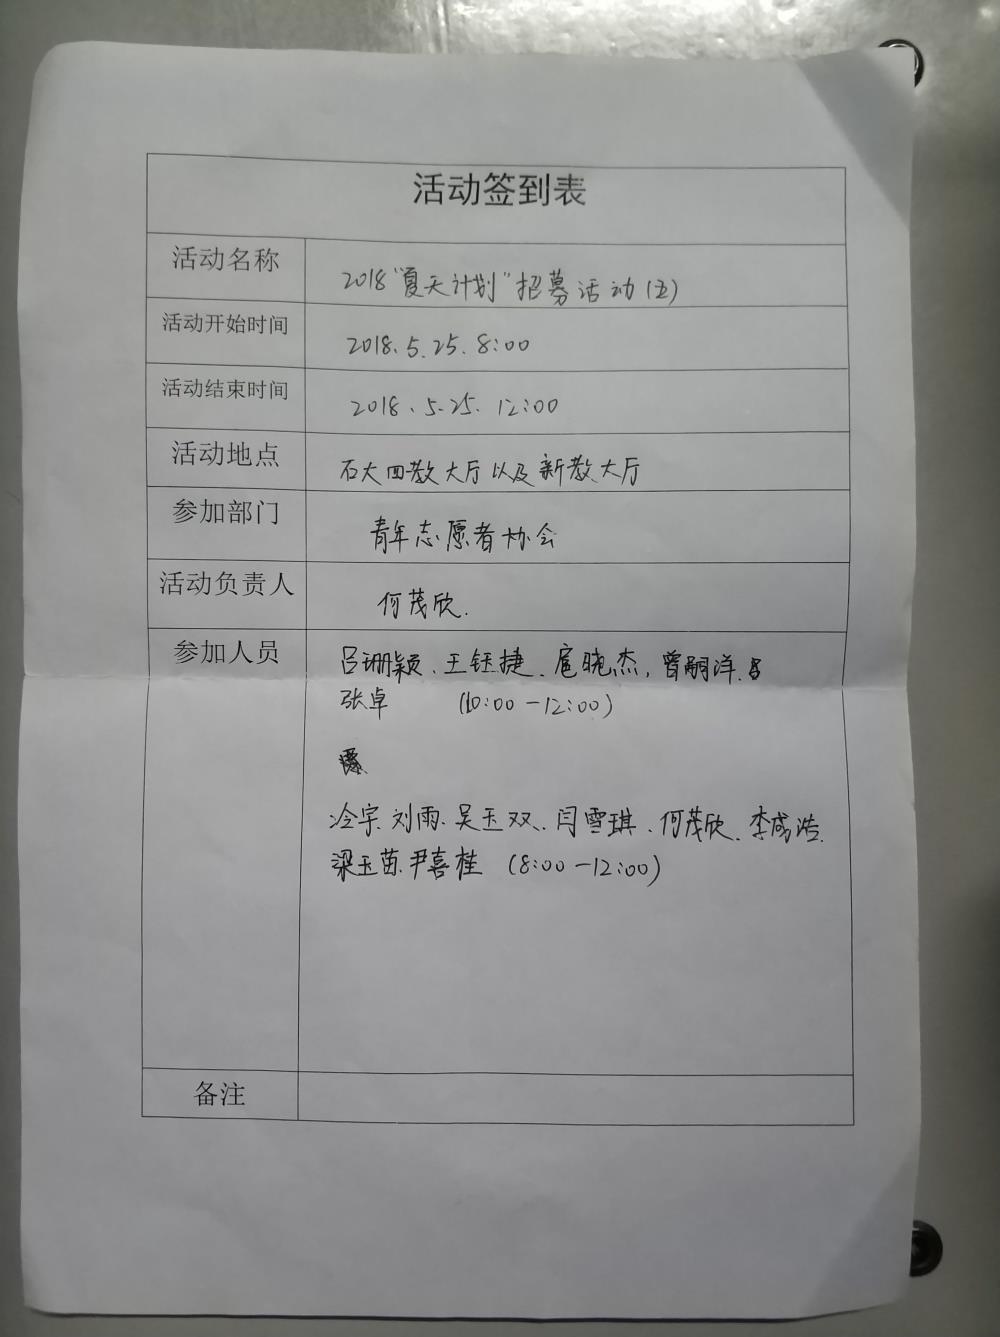 活动签到表
活动名称
2018“夏天计划”招募活动(五)
活动开始时间
2018.5.25.8:00
活动结束时间
2018.5.25.12:00
活动地点
石大四教大厅以及新教大厅
参加部门
青年志愿者协会
活动负责人
何茂欣.
参加人员
吕珊颖、王钰捷、扈晓杰,曾嗣洋、
张卓 (10:00-12:00)
冷宇、刘雨、吴玉双、闫雪琪、何茂欣、李成浩、
梁玉茵、尹喜桂 (8:00-12:00)
备注